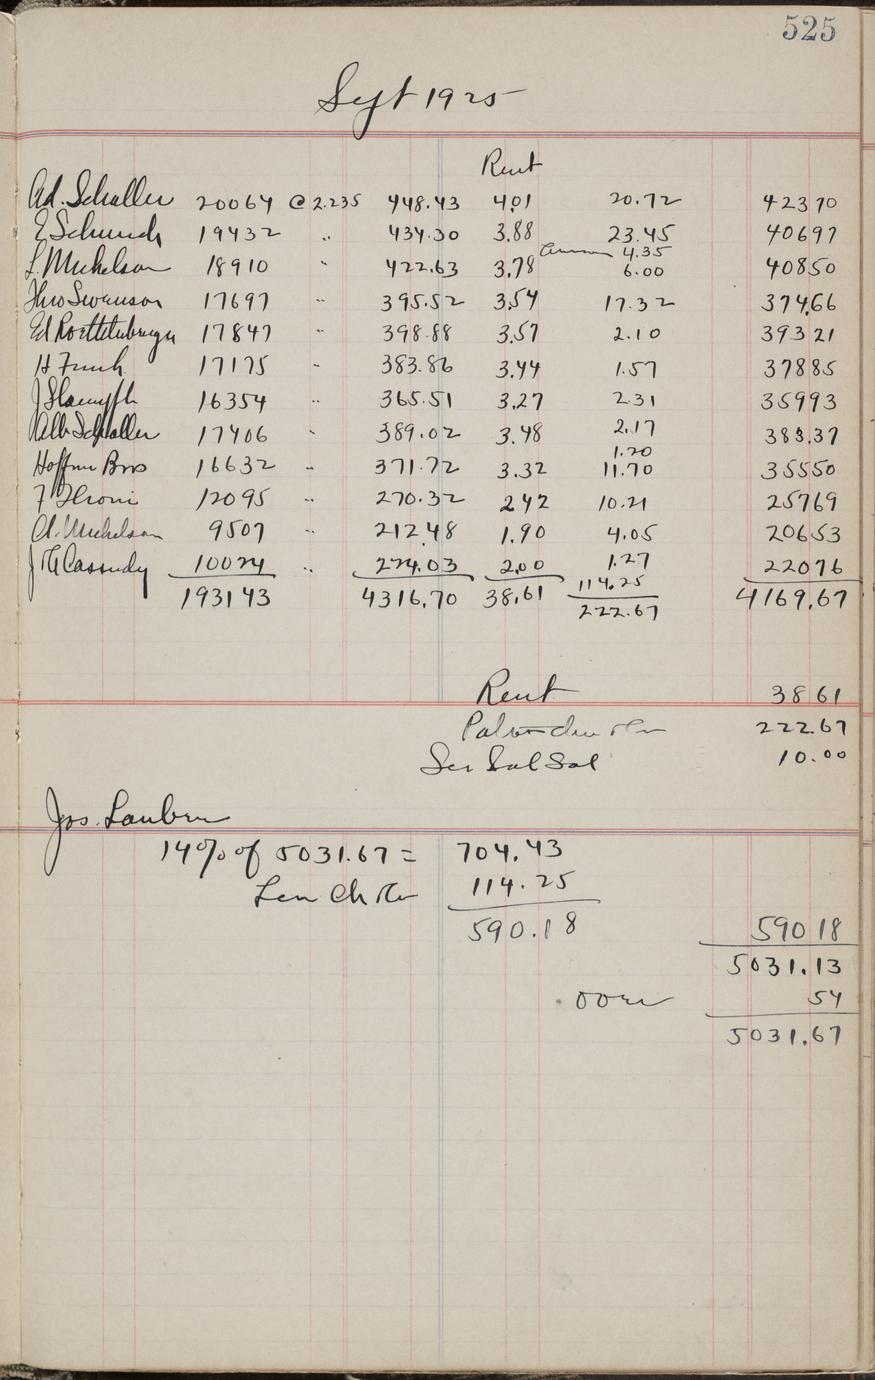 525
Sept 1925
Rent
Ad. Schaller 20064 @ 2.235 448.43 4.01 20.72 423 70
E Schmidt 19432 " 434.30 3.88 23.45 406 97
4.35
L. Mickelson 18910 " 422.63 3.78 6.00 408 50
Theo Swenson 17697 " 395.52 3.54 17.32 374.66
Ed 17847 " 398.88 3.57 2.10 393 21
H Funk 17175 " 383.86 3.44 1.57 378 85
J 16354 " 365.51 3.27 2.31 359 93
Alb Schaller 17406 " 389.02 3.48 2.17 383.37
1.20
Hoffman Bros 16632 " 371.72 3.32 11.70 355 50
F 12095 " 270.32 2 42 10.21 257 69
A. Mickelson 9507 " 212.48 1.90 4.05 206 53
J Cassidy 10024 " 224.03 2.00 1.27 220 76
114.25
193143 4316.70 38.61 222.67 4169.67
Rent 38 61
222.67
Sal 10.00
Jos. Lauber
14% of 5031.67 = 704.43
Ch 114.25
590.18 590 18
5031.13
over 54
5031.67